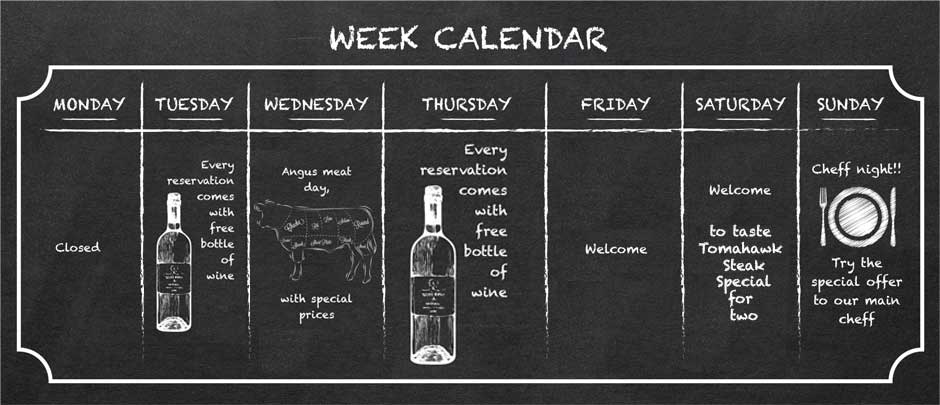 WEEK CALENDAR
MONDAY
TUESDAY
WEDNESDAY
THURSDAY
FRIDAY
SATURDAY
SUNDAY
Closed
Every
reservation
comes
with
free
bottle
of
wine
Angus meat
day,
with special
prices
Every
reservation
comes
with
free
bottle
of
wine
Welcome
Welcome
to taste
Tomahawk
Steak
Special
for
two
Cheff night!!
Try the
special offer
to our main
cheff